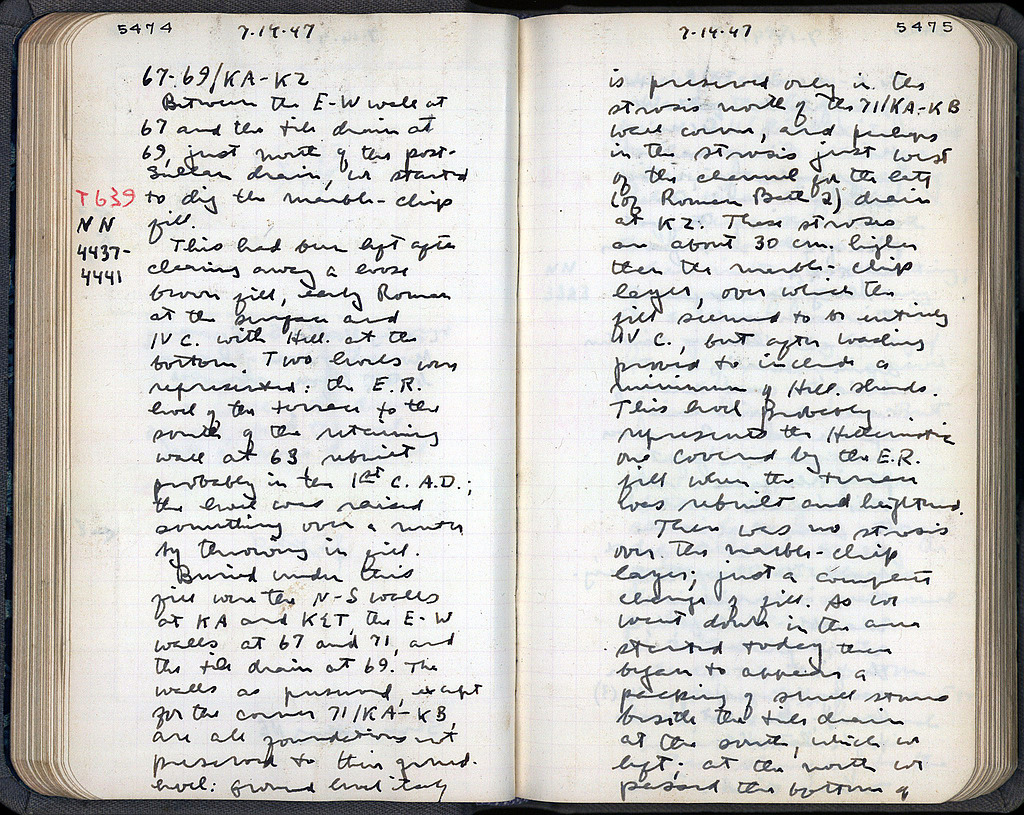 5474 7-14-47
67-69/KA-KZ
Between the E-W wall at
67 and the tile drain at
69, just north of the post-
Sullan drain, we started
T 639 to dig the marble-chip
NN fill.
4437- This had been left after
4441 clearing away a loose
brown fill, early Roman
at the surface and
IV C. with Hell. at the
bottom. Two levels were
represented: the E.R.
level of the terrace to the
south of the retaining
wall at 63 rebuilt
probably in the 1st C. A.D.;
the level was raised
something over a meter
by throwing in fill.
Buried under this
fill were the N-S walls
at KA and KΣT, the E-W
walls at 67 and 71, and
the tile drain at 69. The
walls as preserved, except
for the corner 71/KA-KB,
are all foundations not
preserved to their ground
level: ground level itself
7-14-47 5475
is preserved only in the
strosis north of the 71/KA-KB
wall corner, and perhaps
in the strosis just west
of the channel for the late
(or Roman Bath 2) drain
at KZ. These strosis
are about 30 cm. higher
than the marble-chip
layer, over which the
fill seemed to be entirely
IV C., but after washing
proved to include a
minimum of Hell. sherds.
This level probably
represents the Hellenistic
one covered by the E.R.
fill when the terrace
was rebuilt and heightened.
There was no strosis
over the marble-chip
layer; just a complete
change of fill. As we
went down in the area
started today there
began to appear a
packing of small stones
beside the tile drain
at the south, which we
left; at the north we
passed the bottom of